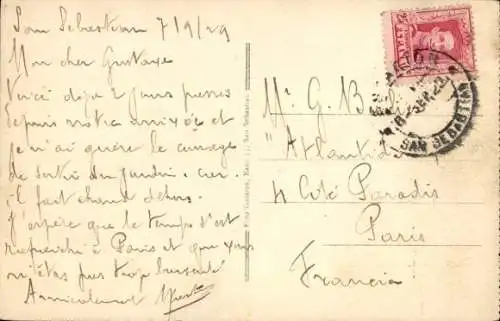 San Sebastian 7/9/29
Mon cher Gustave
Voici déjà 2 jours passés
depuis notre arrivée et
je n'ai guère le courage
de sortir du jardin, car
il fait chaud dehors.
J'espère que le temps s'est
rafraichi à Paris et que vous
n'êtes pas trop
Amicalement
Mr G. B
"Atlantid
4 Cité Paradis
Paris
Francia
SAN SEBASTIAN